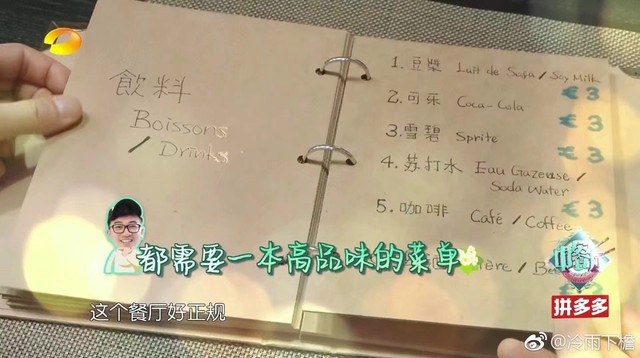 飲料
Boissons
/ Drinks
1. 豆漿 Lait de Soja / Soy Milk
€3
2. 可乐 Coca-Cola
€3
3. 雪碧 Sprite
€3
4. 苏打水 Eau Gazeuse /
Soda Water
€3
5. 咖啡 Café / Coffee
€3
都需要一本高品味的菜单
这个餐厅好正规
中餐厅
拼多多
@冷雨下檐